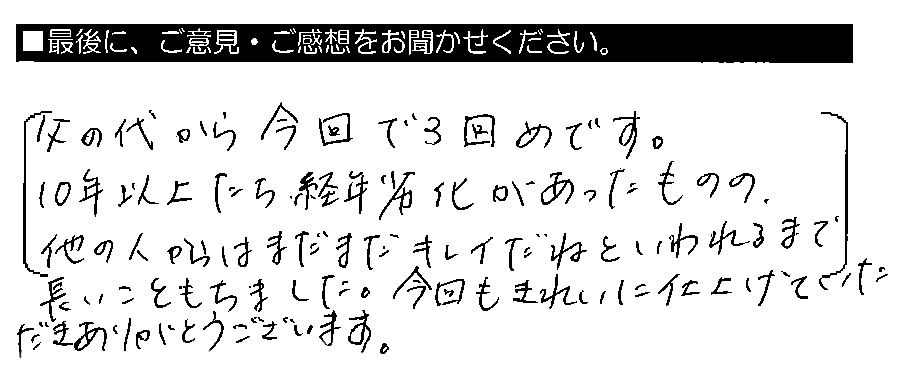 ■最後に、ご意見・ご感想をお聞かせください。
父の代から今回で3回めです。
10年以上たち経年劣化があったものの、
他の人からはまだまだキレイだねといわれるまで
長いこともちました。今回もきれいに仕上げていた
だきありがとうございます。